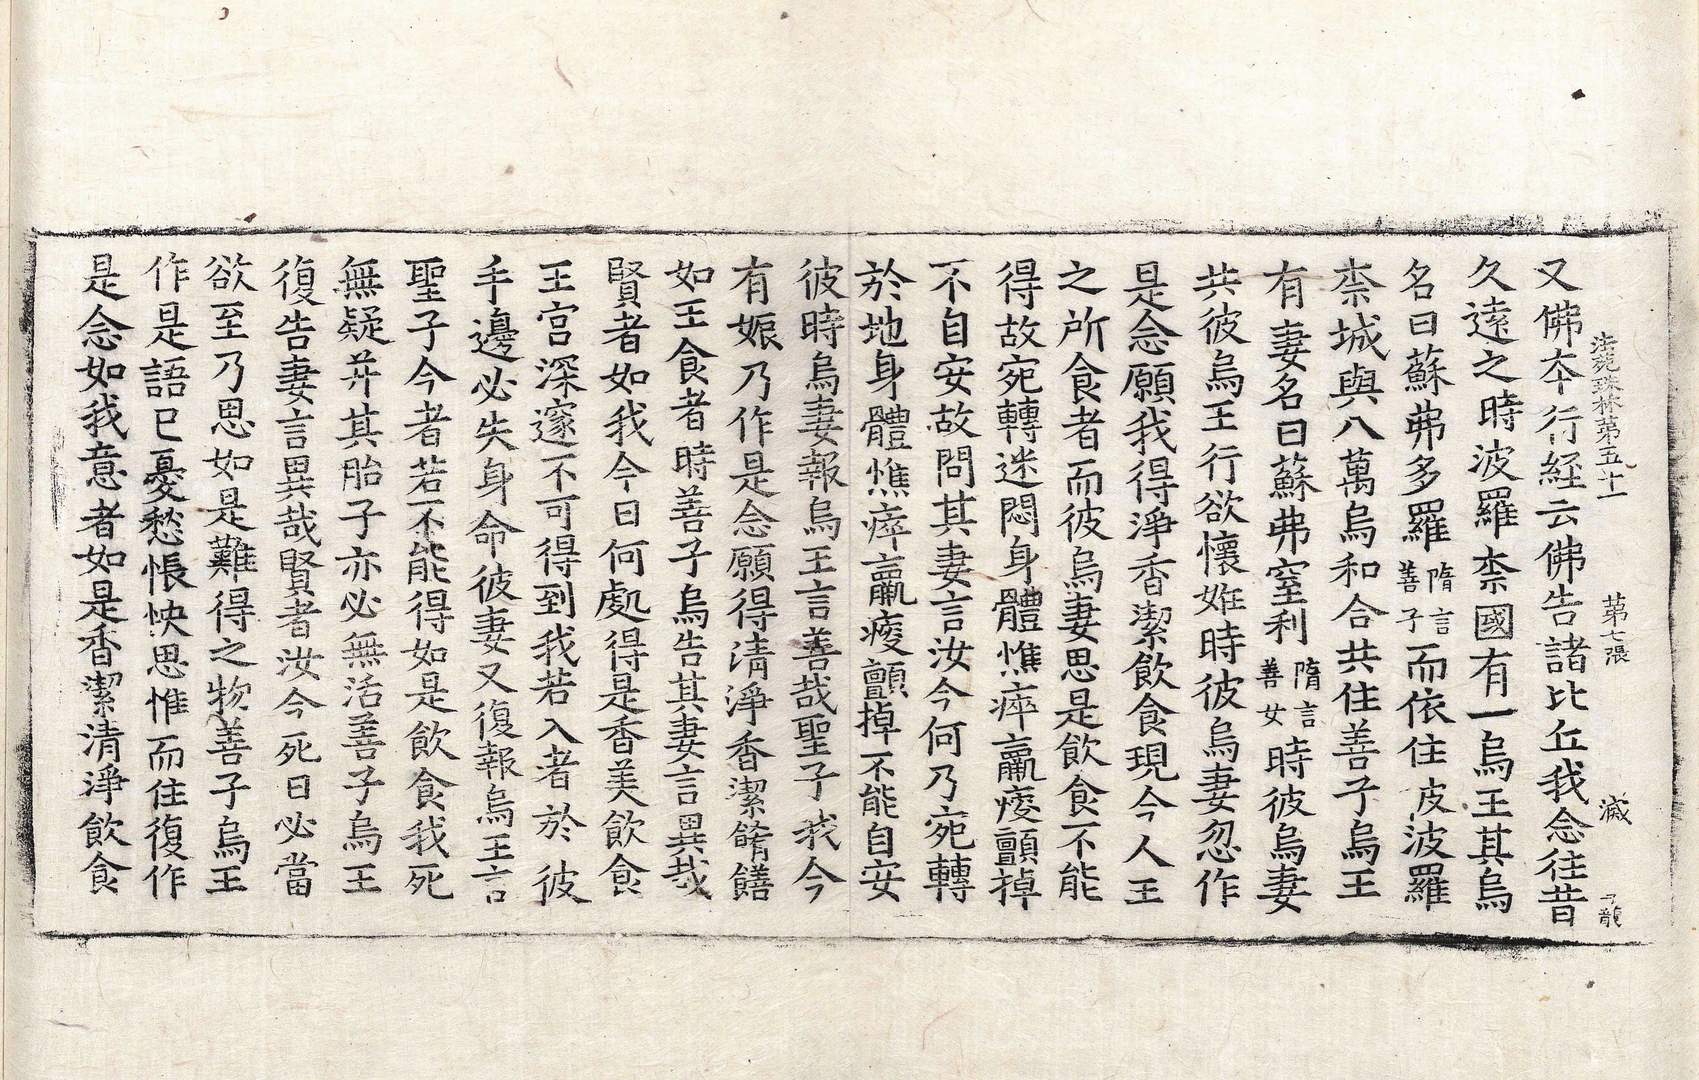 法苑珠林第五十一　第七張　滅
又佛夲行経云佛告諸比丘我念往昔
久遠之時波羅柰國有一烏王其烏
名曰蘇弗多羅隋言善子而依住波羅
柰城與八萬烏和合共住善子烏王
有妻名曰蘇弗窒利隋言善女時彼烏妻
共彼烏王行欲懷妊時彼烏妻忽作
是念願我得淨香潔飲食現今人王
之所食者而彼烏妻思是飲食不能
得故宛轉迷悶身體憔瘁羸瘦顫掉
不自安故問其妻言汝今何乃宛轉
於地身體憔瘁羸瘦顫掉不能自安
彼時烏妻報烏王言善哉聖子我今
有娠乃作是念願得清淨香潔餚饍
如王食者時善子烏告其妻言異哉
賢者如我今日何處得是香美飲食
王宮深邃不可得到我若入者於彼
手邊必失身命彼妻又復報烏王言
聖子今者若不能得如是飲食我死
無疑并其胎子亦必無活善子烏王
復告妻言異哉賢者汝今死日必當
欲至乃思如是難得之物善子烏王
作是語已憂愁悵怏思惟而住復作
是念如我意者如是香潔清淨飲食